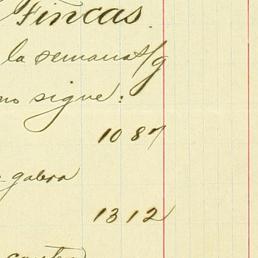 Fincas.
la semana s/g
mo sigue:
1087
galera
1312